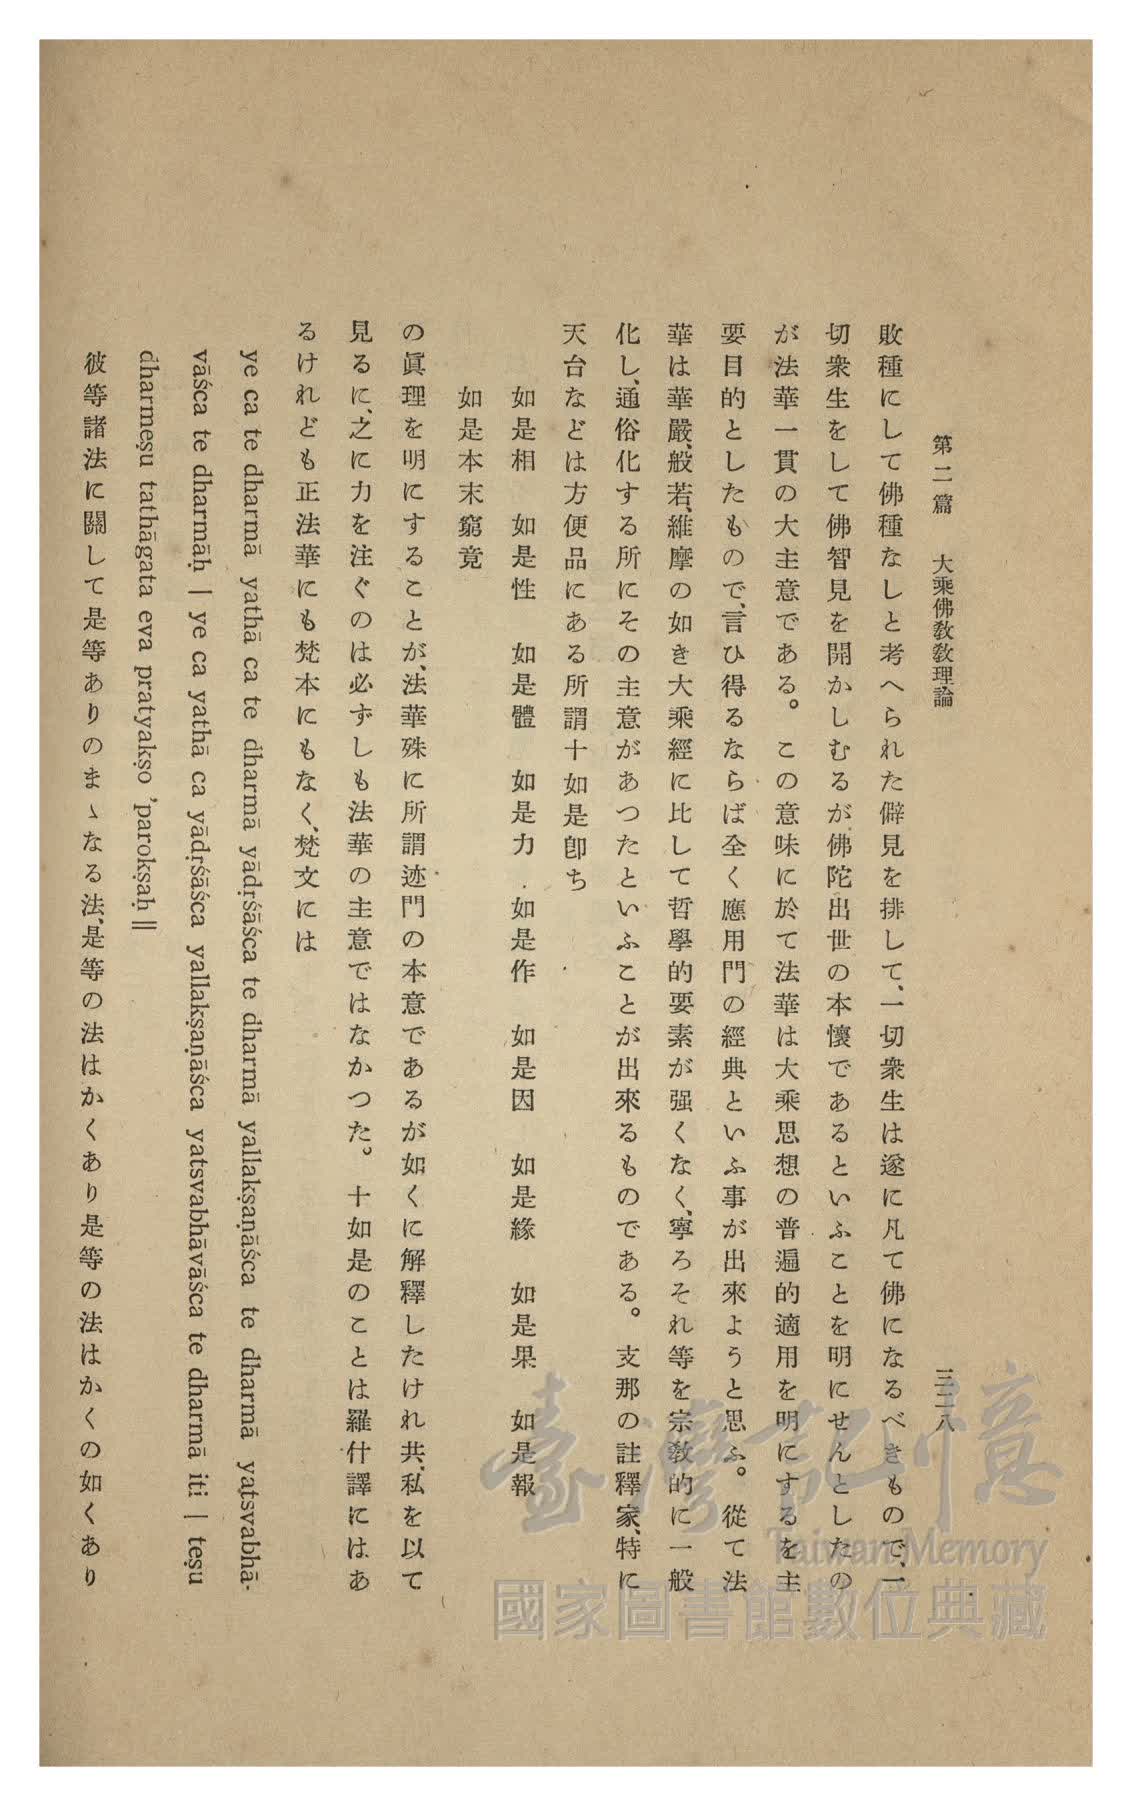 第二篇　大乘佛敎敎理論
三二八
敗種にして佛種なしと考へられた僻見を排して、一切衆生は遂に凡て佛になるべきもので、一
切衆生をして佛智見を開かしむるが佛陀出世の本懷であるといふことを明にせんとしたの
が法華一貫の大主意である。この意味に於て法華は大乘思想の普遍的適用を明にするを主
要目的としたもので、言ひ得るならば全く應用門の經典といふ事が出來ようと思ふ。從て法
華は華嚴、般若、維摩の如き大乘經に比して哲學的要素が强くなく、寧ろそれ等を宗敎的に一般
化し、通俗化する所にその主意があつたといふことが出來るものである。支那の註釋家、特に
天台などは方便品にある所謂十如是卽ち
如是相　如是性　如是體　如是力　如是作　如是因　如是緣　如是果　如是報
如是本末窮竟
の眞理を明にすることが、法華殊に所謂迹門の本意であるが如くに解釋したけれ共、私を以て
見るに、之に力を注ぐのは必ずしも法華の主意ではなかつた。十如是のことは羅什譯にはあ
るけれども正法華にも梵本にもなく、梵文には
ye ca te dharmā yathā ca te dharmā yādṛśāśca te dharmā yallakṣaṇāśca te dharmā yatsvabhā-
vāśca te dharmāḥ | ye ca yathā ca yādṛśāśca yallakṣaṇāśca yatsvabhāvāśca te dharmā iti | teṣu
dharmeṣu tathāgata eva pratyakṣo 'parokṣaḥ ||
彼等諸法に關して是等ありのまゝなる法、是等の法はかくあり是等の法はかくの如くあり
臺灣記憶
Taiwan Memory
國家圖書館數位典藏